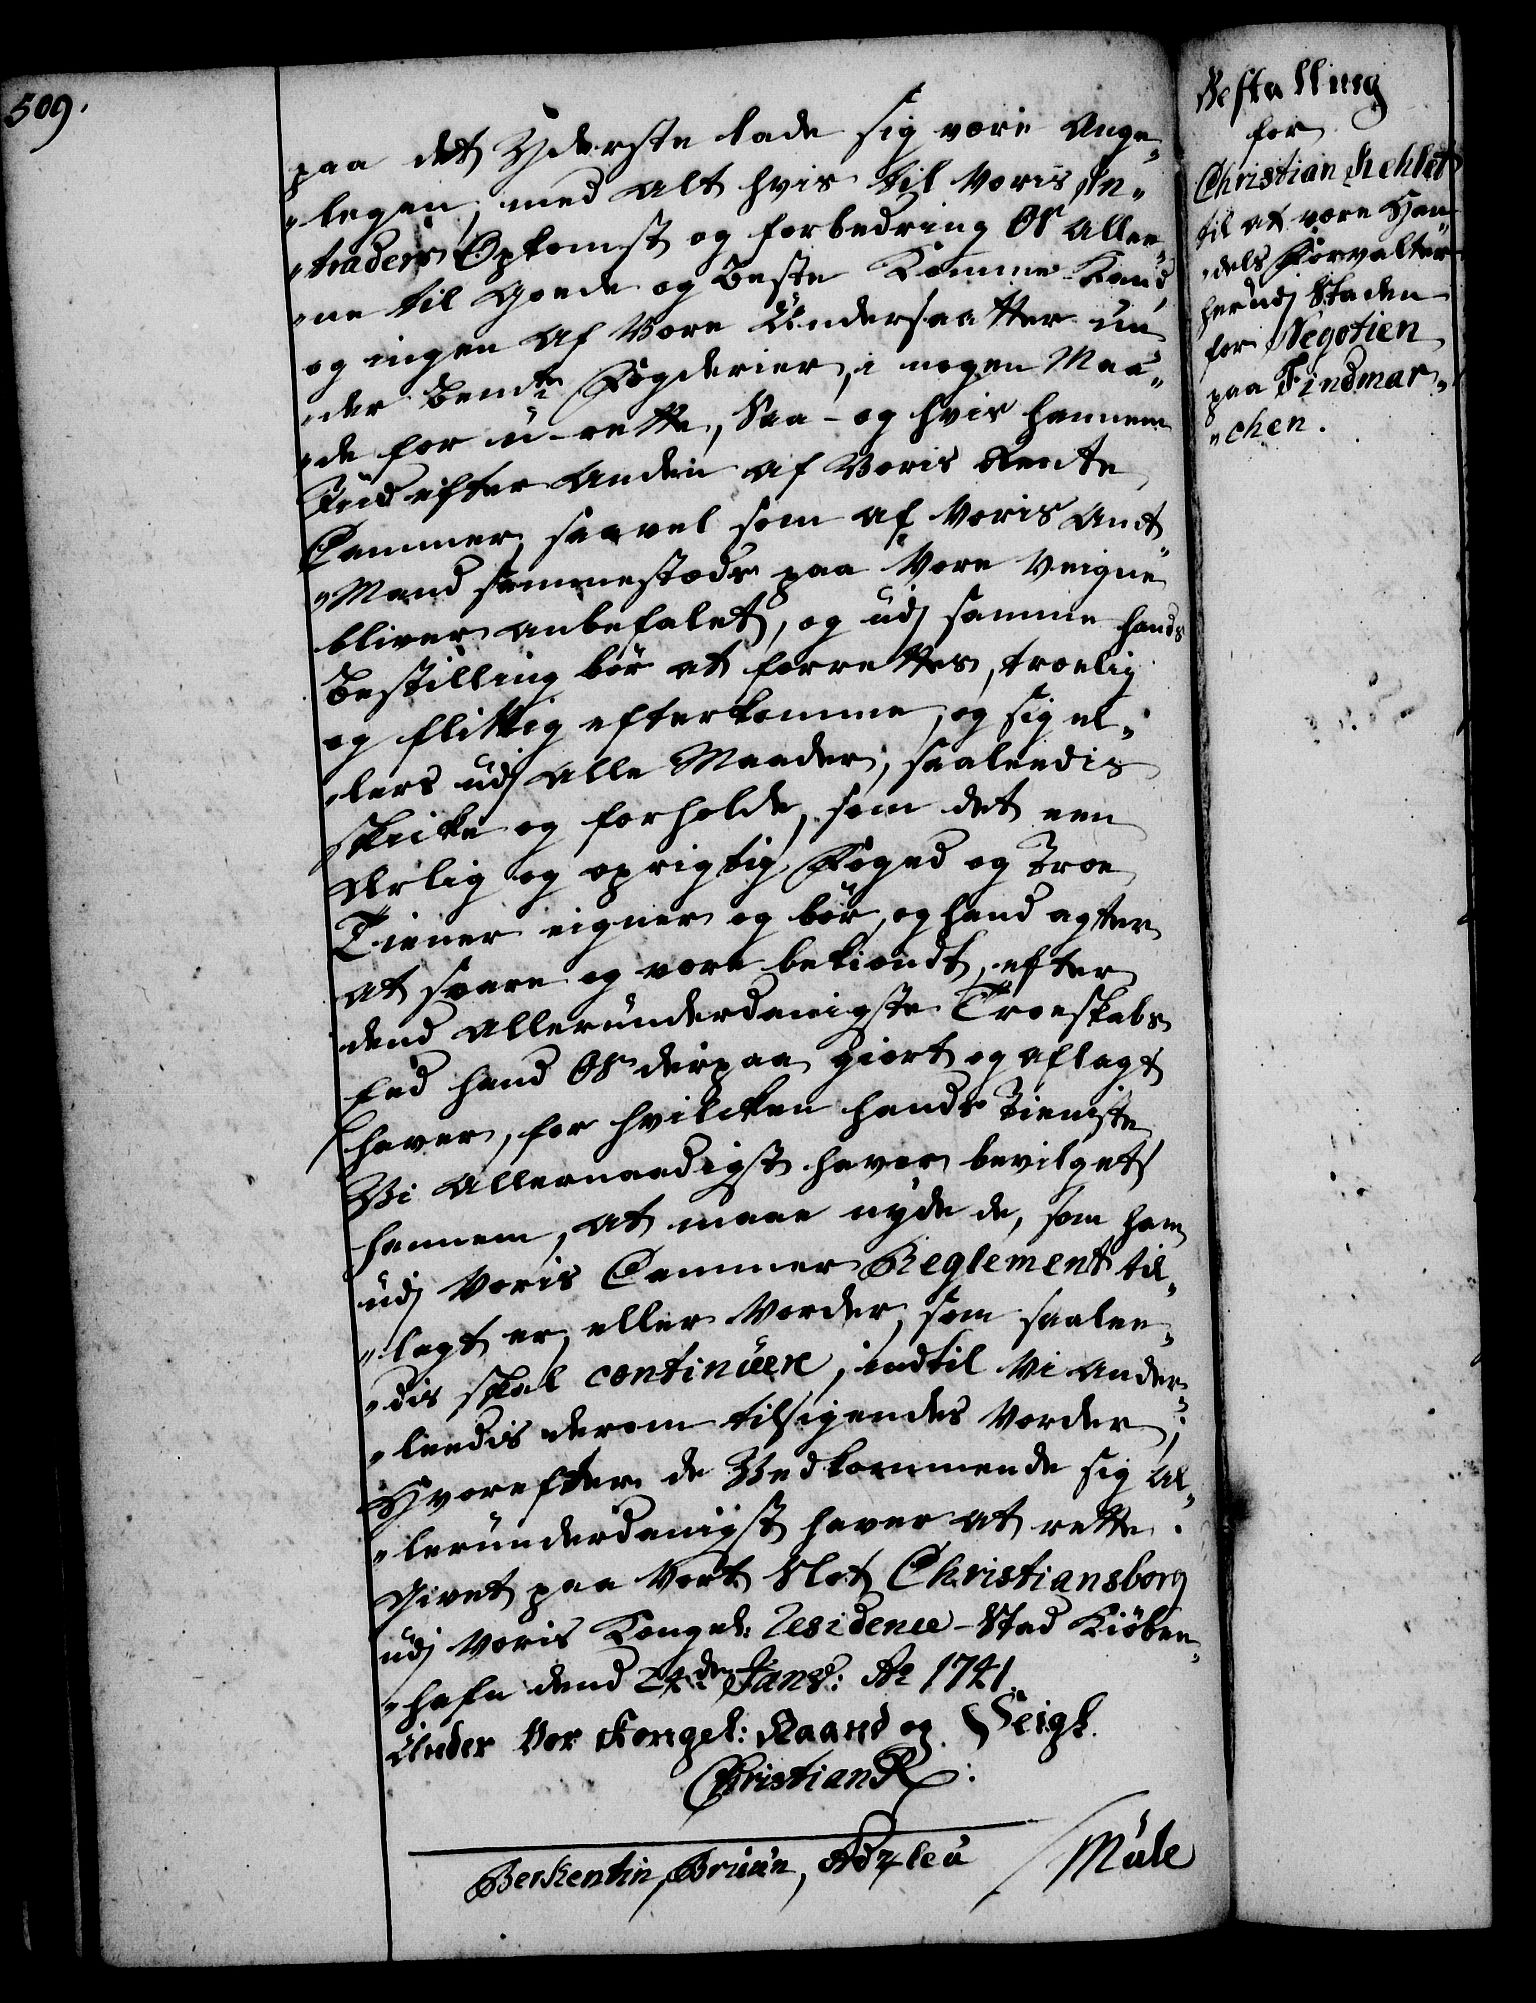 509.
paa det Yderste lade sig være Ange¬
„legen, med Alt hvis til Voris In¬
„traders Opkomst og forbedring Os Allee¬
„ne til Goede og Beste Komme Kand,
og ingen Af Vore Undersaatter un¬
„der bemte Fogderier, i nogen Maa¬
„de for u-rette, Saa- og hvis hannem
Tiid efter Anden Af Voris Rente
Cammer, saavel som Af Voris Amt¬
„Mand sammestæds paa Vore Veigne
bliver Anbefalet, og udj samme hands
Bestilling bør at forrettes, troelig
og flittig efterkomme, og sig el¬
„lers udj Alle Maader, saaleedis
skicke og forholde, som det een
Ærlig og oprigtig Foged og Troe
Tiener eigner og bør, og hand agter
At svare og være bekiændt, efter
dend Allerunderdanigste Troeskabs
Eed hand Os derpaa giort og Aflagt
haver, for hvilcken hands Tieneste
Vi Allernaadigst haver bevilget
hannem, At maae nyde de, som ham
udj Voris Cammer Reglement til¬
„lagt er, eller Vorder, som saalee¬
„dis skal continuere, indtil Vi Ander¬
„leedis derom tilsigendes Vorder;
Hvorefter de Vedkommende sig Al¬
„lerunderdanigst haver At rette.
Givet paa Vort Slot Christiansborg
udj Voris Kongel: Residence-Stad Kiöben¬
„hafn dend 24de Janv: Ao 1741.
Under Vor Kongel: Haand og Seigl.
Christian R:
Berkentin, Bruun, Adeleu / Mule
Bestalling
for
Christian Kehlet
til at være Han¬
„dels Forvalter
her udj Staden
for Negotien
paa Findmar¬
„chen.